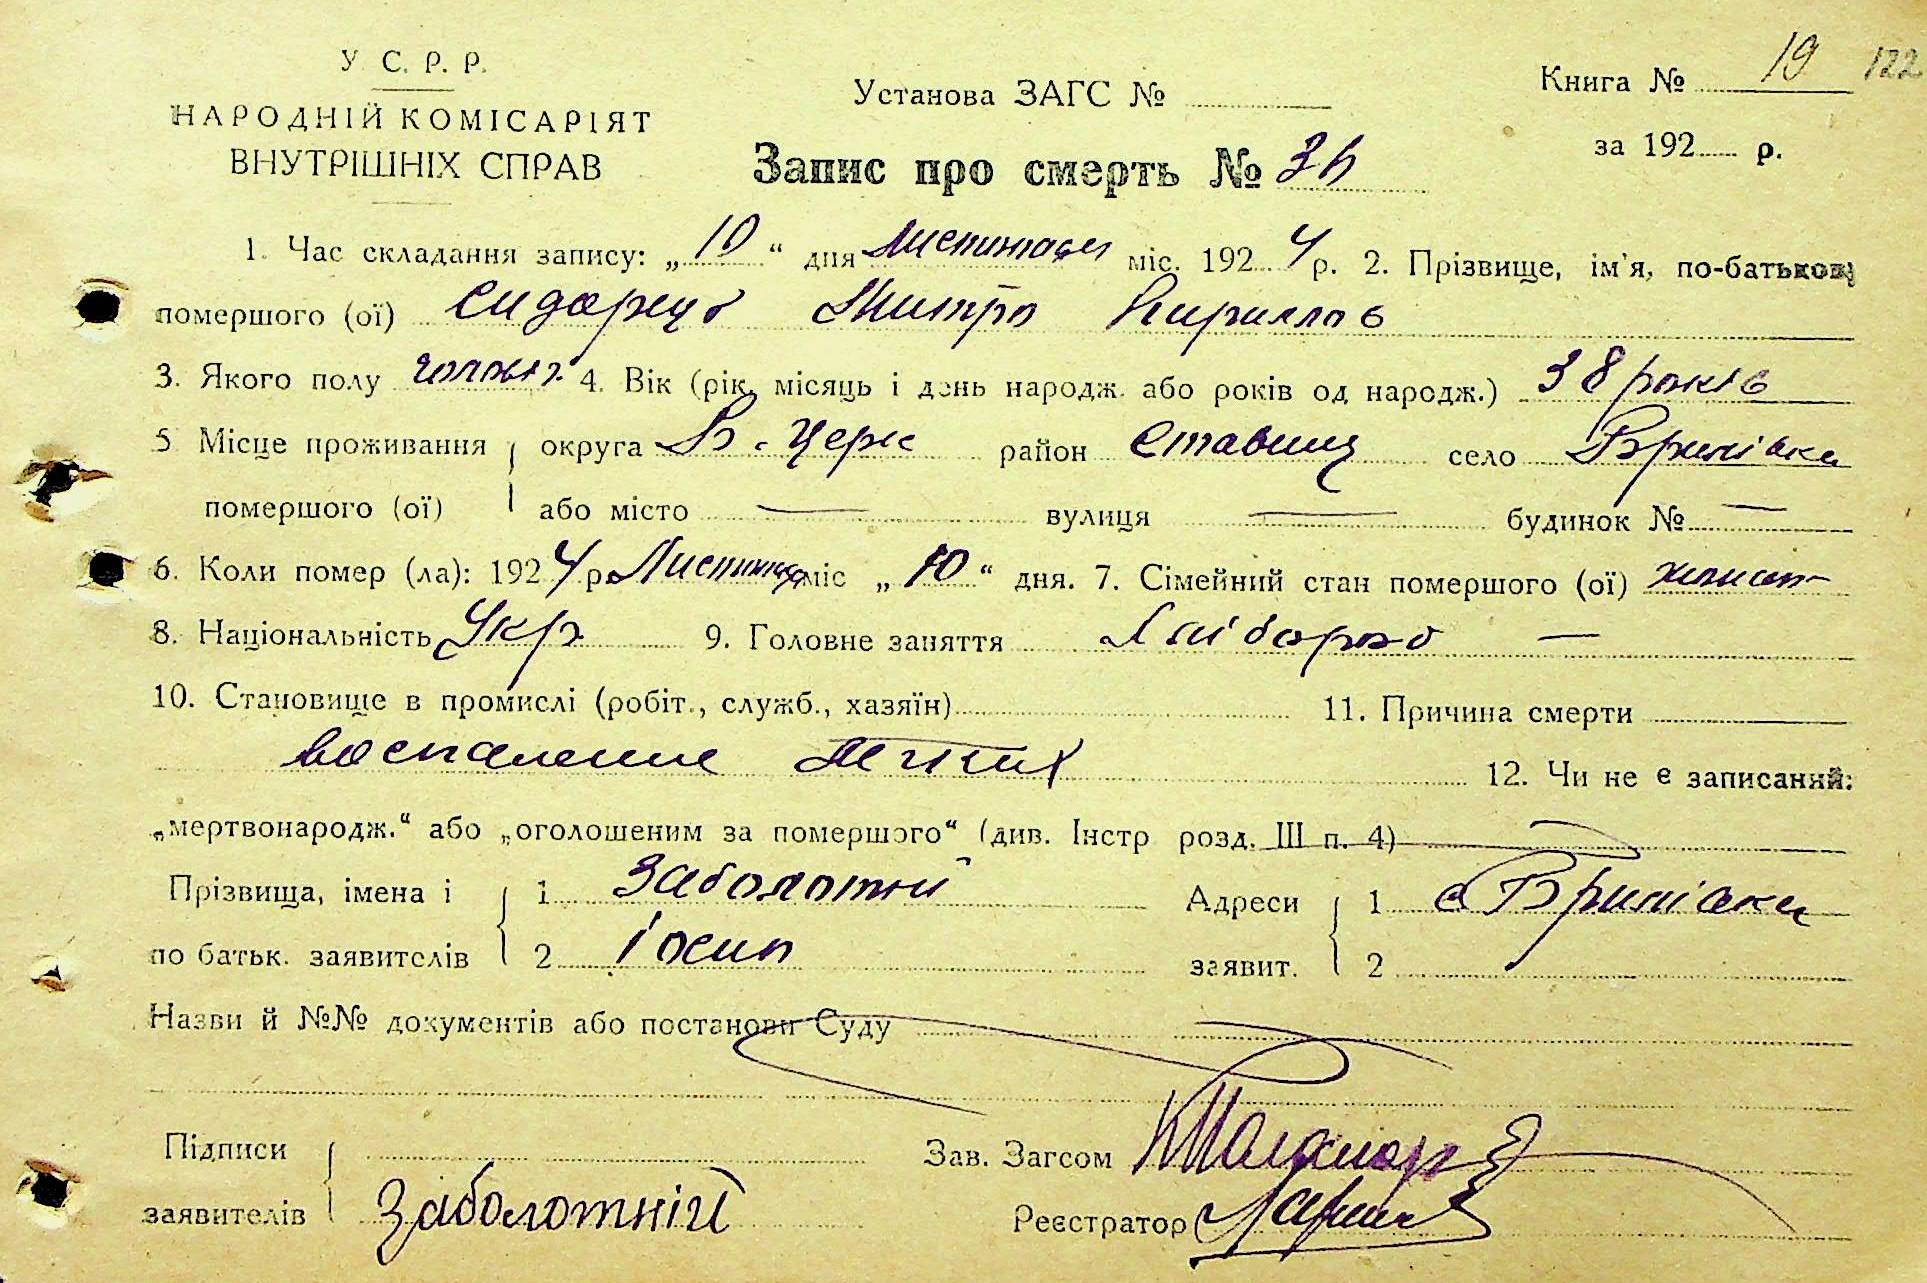 У С. Р. Р.
НАРОДНІЙ КОМІСАРІЯТ
ВНУТРІШНІХ СПРАВ
Установа ЗАГС №
Книга № 19 122
за 192 р.
Запис про смерть №
1. Час складання запису: „ 10 “ дня Листопада міс. 192 4 р. 2. Прізвище, ім'я, по-батькові
помершого (ої) Дмитро Кириллов
3. Якого полу чолов. 4. Вік (рік, місяць і день народж. або років од народж.) 38 років
5 Місце проживання округа Б. Церк район Ставищ село
помершого (ої) або місто — вулиця — будинок № —
6. Коли помер (ла): 192 4 р. Листопад міс „ 10 “ дня. 7. Сімейний стан помершого (ої)
8. Національність Укр. 9. Головне заняття Хлібороб —
10. Становище в промислі (робіт., служб., хазяїн) 11. Причина смерти
воспаление легких 12. Чи не є записаний:
„мертвонародж.“ або „оголошеним за помершого“ (див. Інстр розд. III п. 4)
Прізвища, імена і 1 Заболотний Адреси 1 с
по батьк. заявителів 2 Іосип заявит. 2
Назви й №№ документів або постанови Суду
Підписи Зав. Загсом
заявителів Заболотній Реєстратор